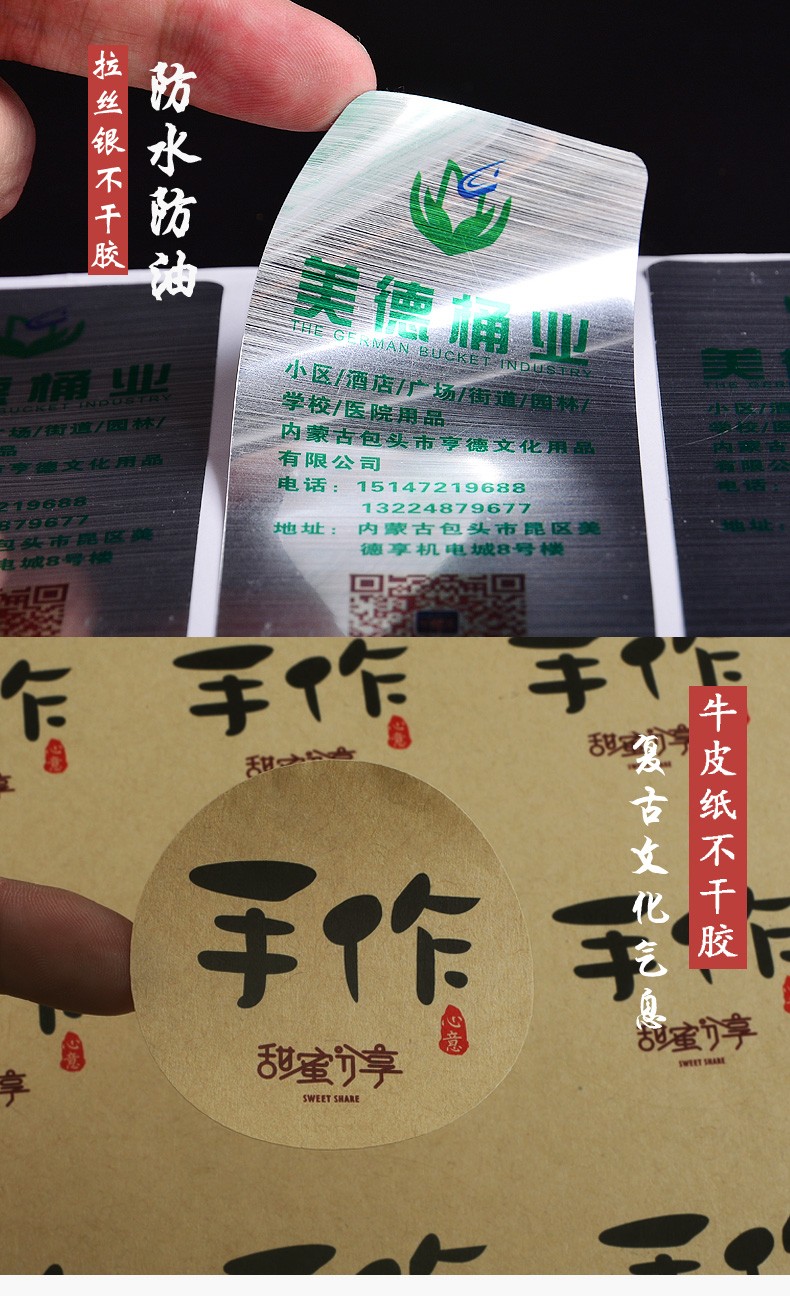 拉丝银不干胶
防水防油
美德桶业
THE GERMAN BUCKET INDUSTRY
小区/酒店/广场/街道/园林/
学校/医院用品
内蒙古包头市亨德文化用品
有限公司
电话：15147219688
13224879677
地址：内蒙古包头市昆区美
德享机电城8号楼
德桶业
BUCKET INDUSTRY
场/街道/园林/
品
亨德文化用品
7219688
4879677
包头市昆区美
电城8号楼
美
THE GER
小区/酒
学校/医
内蒙古
有限公
电话：
地址：
牛皮纸不干胶
复古文化气息
手作
心意
甜蜜分享
手作
甜蜜分享
作
心意
享
手作
心意
甜蜜分享
SWEET SHARE
手作
甜蜜分享
SWEET SHARE
心意
享
手作
手作